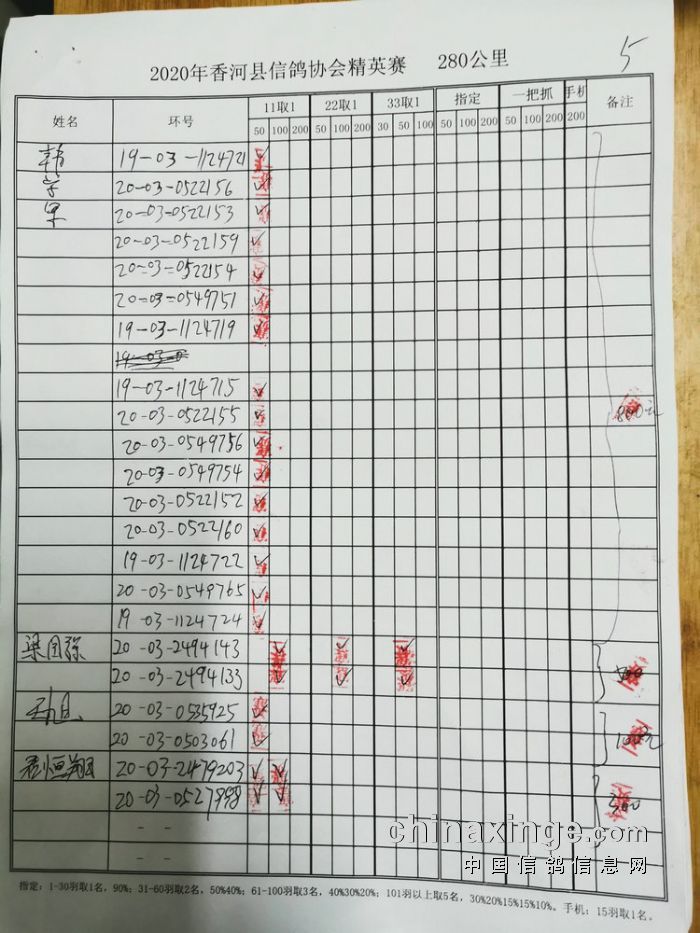 5
2020年香河县信鸽协会精英赛 280公里
姓名 环号 11取1 22取1 33取1 指定 一把抓 手机 备注
50 100 200 50 100 200 30 50 100 50 100 200 50 100 200 200
韩 19-03-1124721 ✓
学 20-03-0522156 ✓
军 20-03-0522153 ✓
20-03-0522159 ✓
20-03-0522154 ✓
20-03-0549751 ✓
19-03-1124719 ✓
19-03-0
19-03-1124715 ✓
20-03-0522155 ✓ 800元
20-03-0549756 ✓
20-03-0549754 ✓
20-03-0522152 ✓
20-03-0522160 ✓
19-03-1124722 ✓
20-03-0549765 ✓
19-03-1124724 ✓
梁国强 20-03-2494143 ✓ ✓ ✓
20-03-2494133 ✓ ✓ ✓ 500
20-03-0535925 ✓
20-03-0503061 ✓ 100元
恒翔 20-03-2479203 ✓ ✓
20-03-0527998 ✓ ✓ 300
- -
- -
chinaxinge.com
中国信鸽信息网
指定：1-30羽取1名，90%；31-60羽取2名，50%40%；61-100羽取3名，40%30%20%；101羽以上取5名，30%20%15%15%10%。手机：15羽取1名。